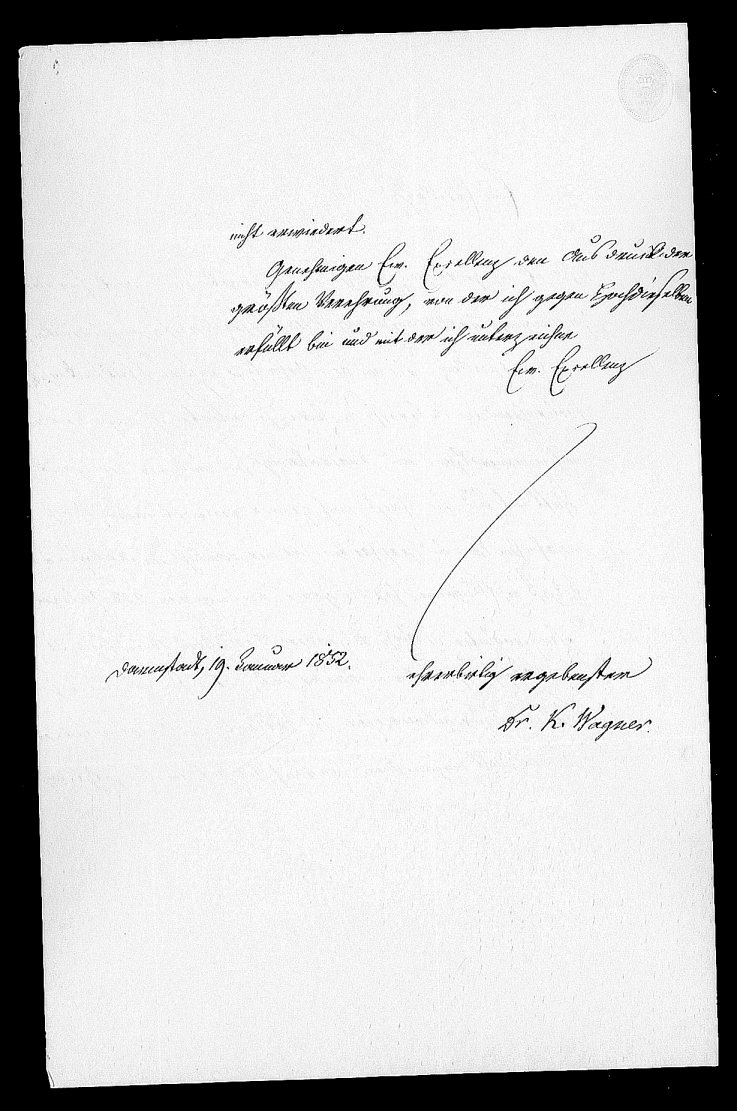 nicht erwiedert.
Genehmigen Ew. Exzellenz den Ausdruck der
größten Verehrung, von der ich gegen Hochdieselben
erfüllt bin und mit der ich unterzeichne
Ew. Exzellenz
Darmstadt, 19. Januar 1852.
ehrerbietig ergebenster
Dr. K. Wagner.